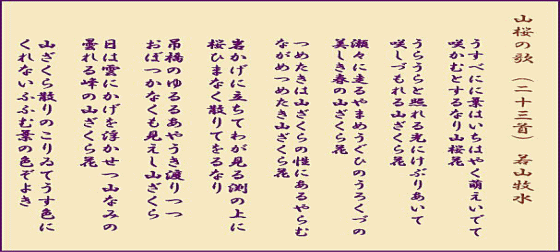 山桜の歌（二十三首） 若山牧水
うすべにに葉はいちはやく萌えいでて
咲かむとするなり山桜花
うらうらと照れる光にけぶりあいて
咲しづもれる山ざくら花
瀬々に走るやまめうぐひのうろくづの
美しき春の山ざくら花
つめたきは山ざくらの性にあるやらむ
ながめつめたき山ざくら花
岩かげに立ちてわが見る渕の上に
桜ひまなく散りてをるなり
吊橋のゆるるあやうき渡りつつ
おぼつかなくも見えし山ざくら
日は雲にかげを浮かせつ山なみの
曇れる峰の山ざくら花
山ざくら散りのこりゐてうす色に
くれないふふむ葉の色ぞよき